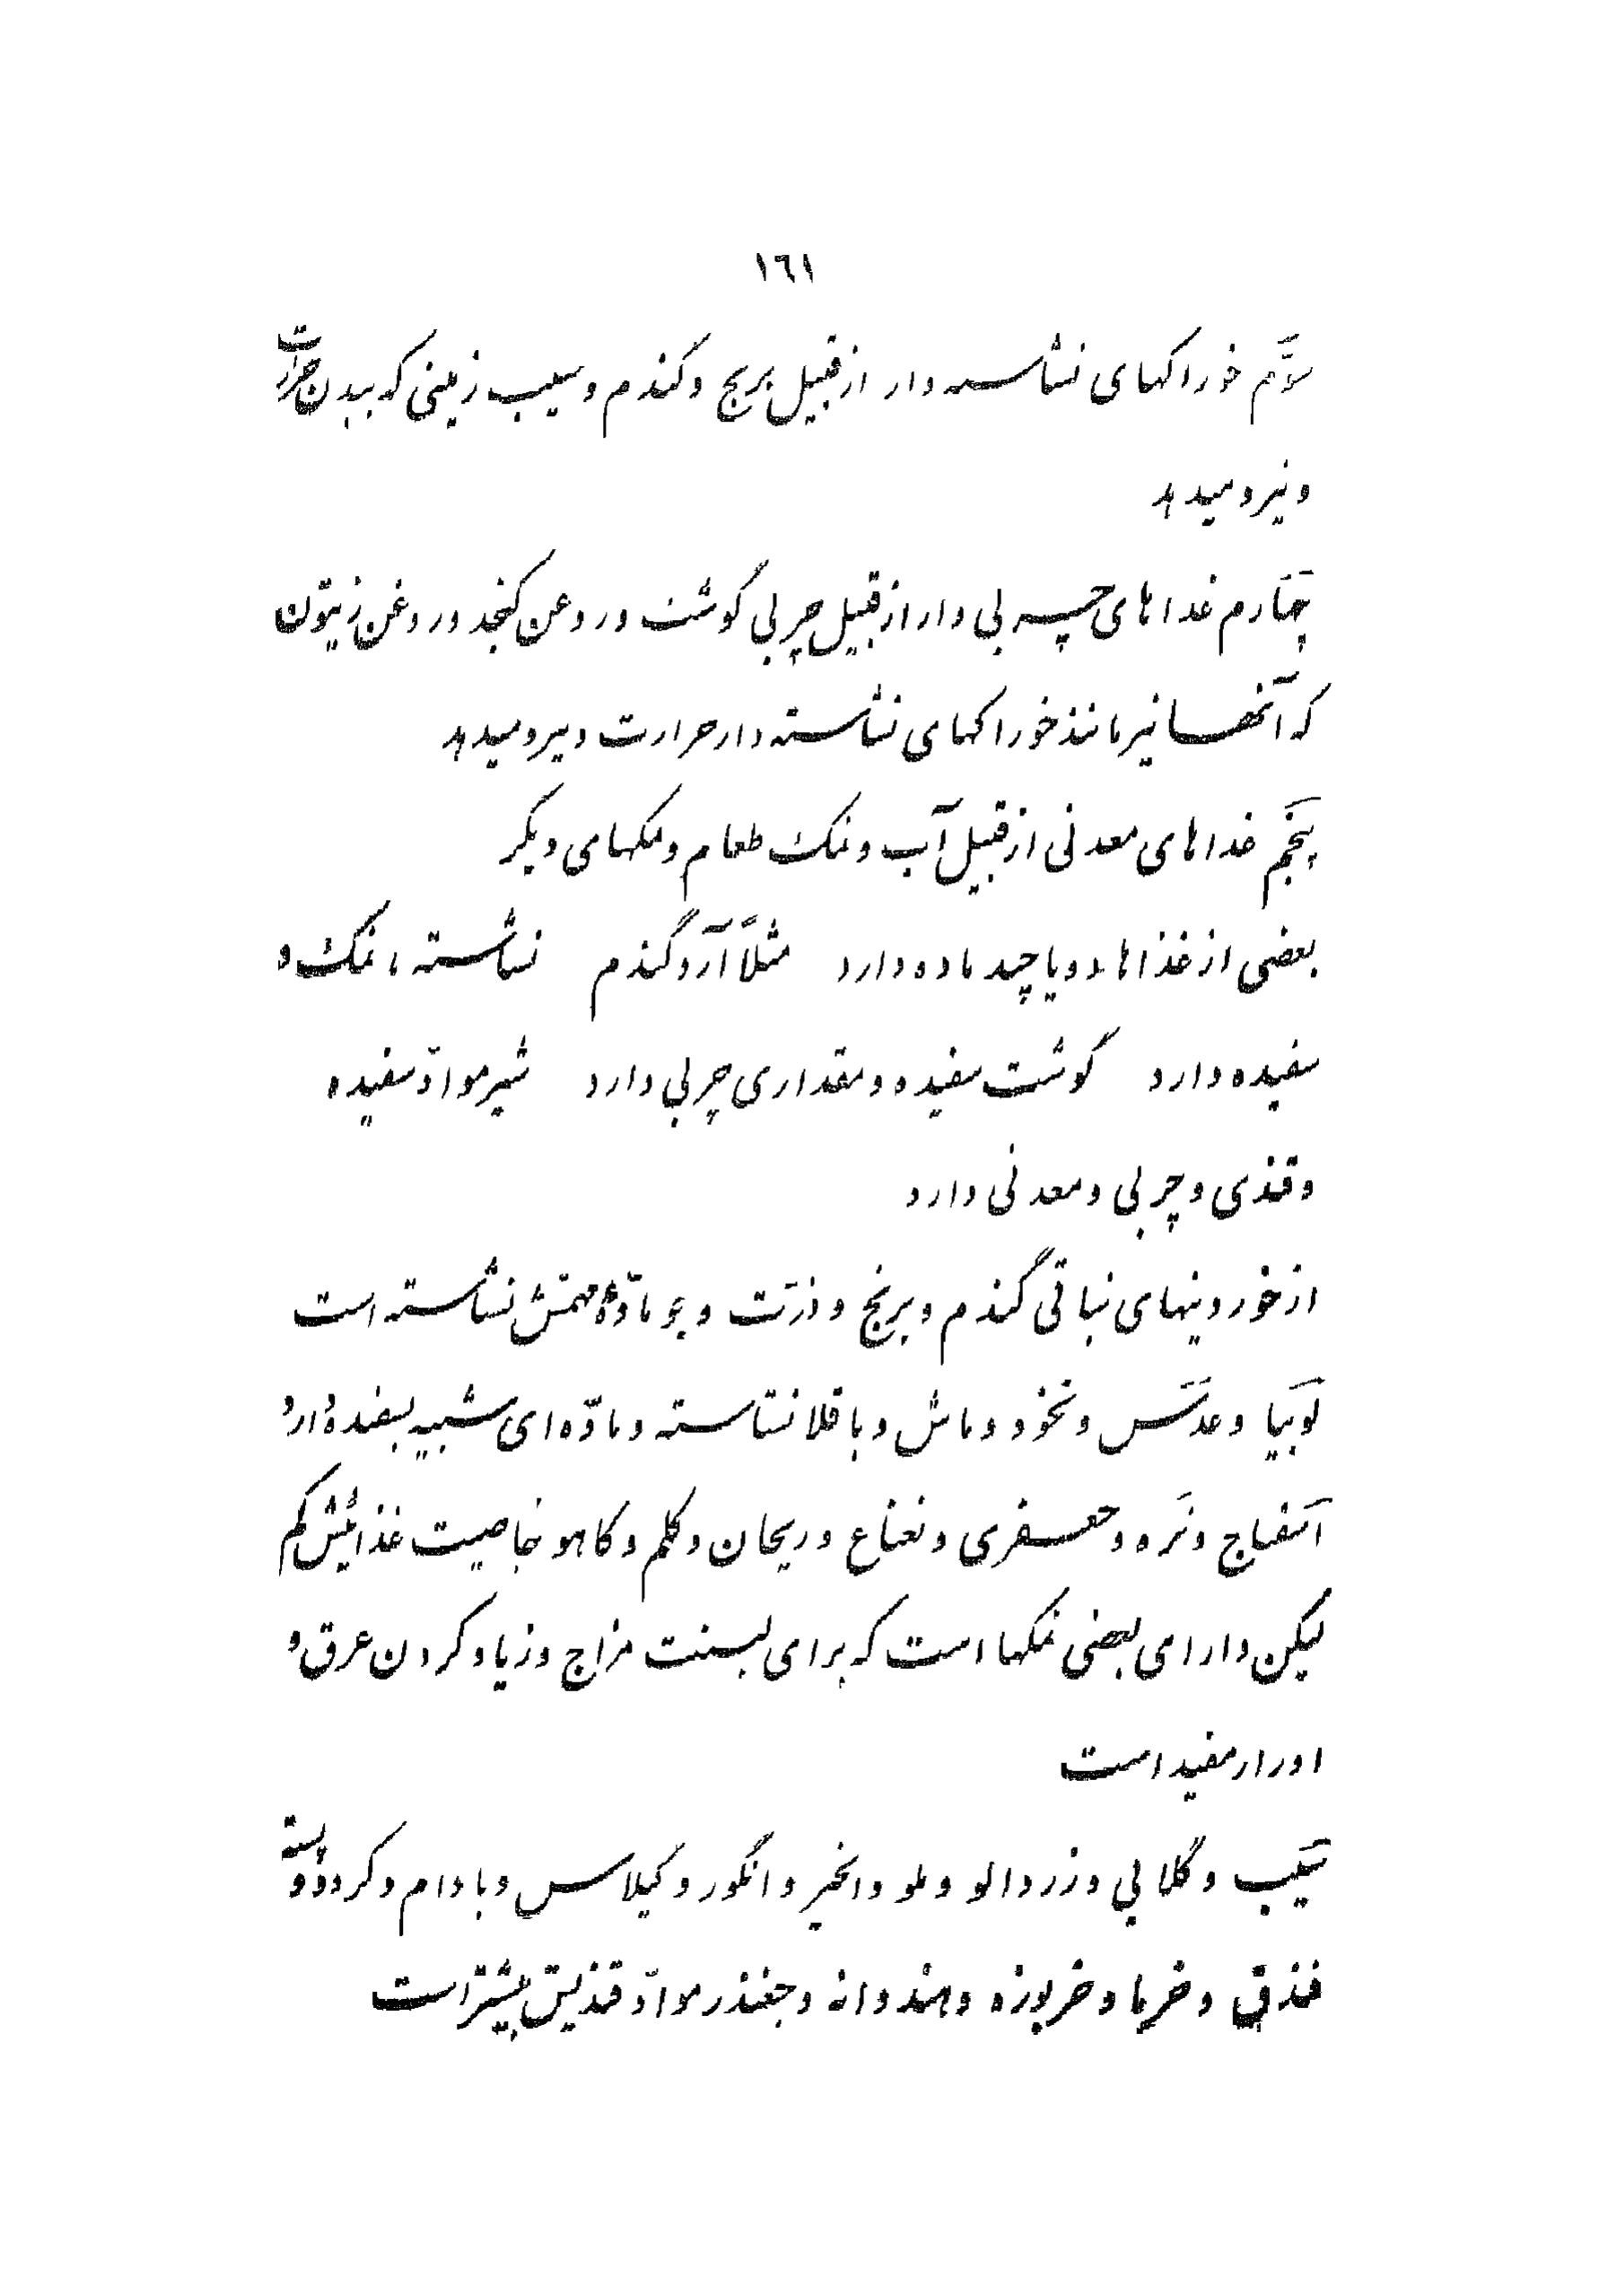 ١٦١
سوّم خوراکهای نشاسته دار از قبیل برنج و گندم و سیب زمینی که ببدن حرارت
و نیرو میدهد
چهارم غذاهای چربی دار از قبیل چربی گوشت و روغن کنجد و روغن زیتون
که آنها نیز مانند خوراکهای نشاسته دار حرارت و نیرو میدهد
پنجم غذاهای معدنی از قبیل آب و نمک طعام و نمکهای دیگر
بعضی از غذاها دو یا چند ماده دارد مثلاً آرد گندم نشاسته ، نمک و
سفیده دارد گوشت سفیده و مقداری چربی دارد شیر موادّ سفیده
و قندی و چربی و معدنی دارد
از خوردنیهای نباتی گندم و برنج و ذرّت و جو مادّهٔ مهمّش نشاسته است
لوبیا و عدس و نخود و ماش و باقلا نشاسته و مادّه ای شبیه بسفیده دارد
اسفناج و تره و جعفری و نعناع و ریحان و کلم و کاهو خاصیت غذائیش کم
لیکن دارای بعضی نمکها است که برای لینت مزاج و زیاد کردن عرق و
ادرار مفید است
سیب و گلابی و زردآلو و هلو و انجیر و انگور و گیلاس و بادام و گردو و پسته
فندق و خرما و خربوزه و هندوانه و چغندر موادّ قندیش بیشتر است